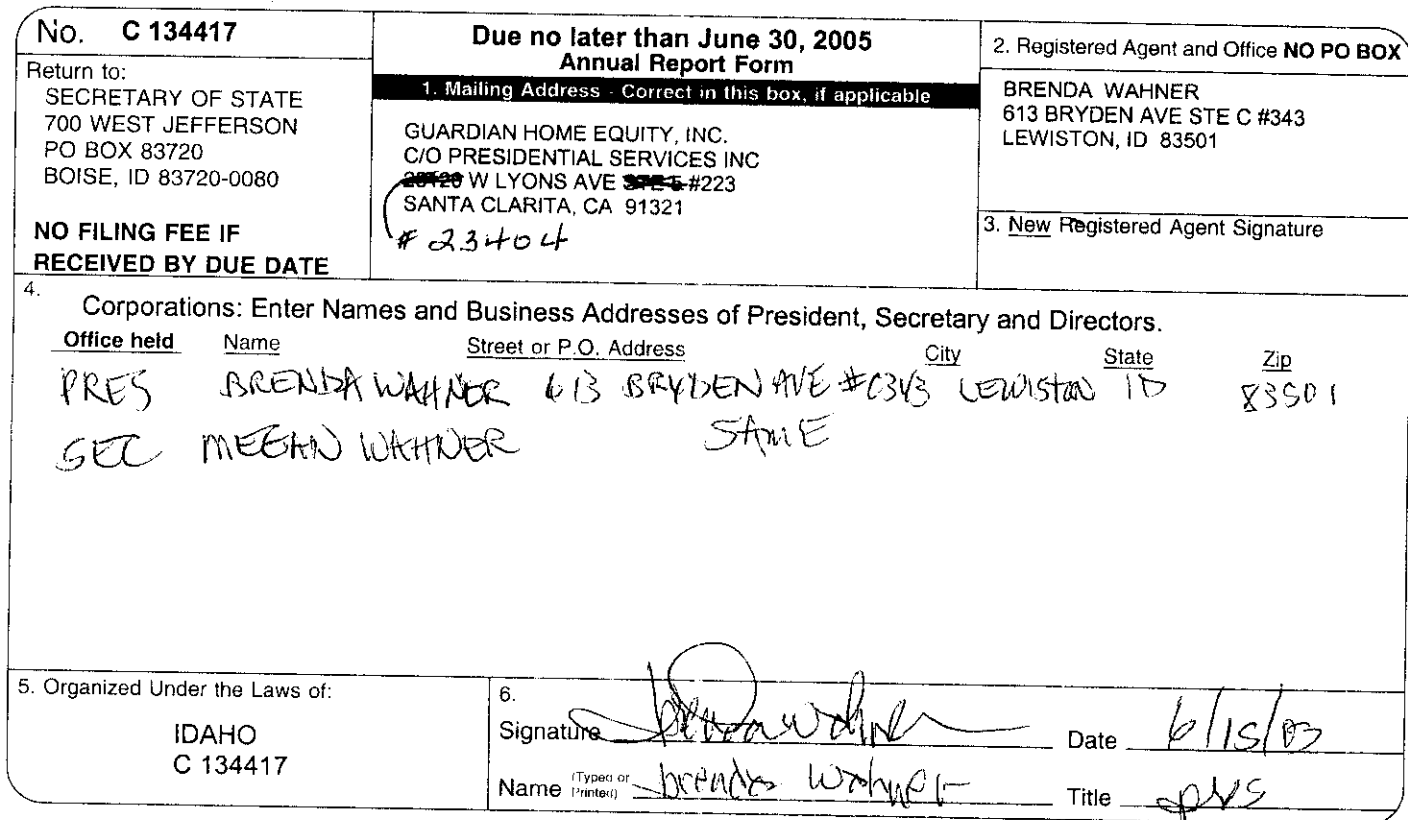 No. C 134417
Return to:
SECRETARY OF STATE
700 WEST JEFFERSON
PO BOX 83720
BOISE, ID 83720-0080
NO FILING FEE IF
RECEIVED BY DUE DATE
Due no later than June 30, 2005
Annual Report Form
1. Mailing Address - Correct in this box, if applicable
GUARDIAN HOME EQUITY, INC.
C/O PRESIDENTIAL SERVICES INC
W LYONS AVE #223
SANTA CLARITA, CA 91321
# 23404
2. Registered Agent and Office NO PO BOX
BRENDA WAHNER
613 BRYDEN AVE STE C #343
LEWISTON, ID 83501
3. New Registered Agent Signature
4.
Corporations: Enter Names and Business Addresses of President, Secretary and Directors.
Office held Name Street or P.O. Address City State Zip
PRES BRENDA WAHNER 613 BRYDEN AVE #C343 LEWISTON ID 83501
SEC MEGAN WAHNER SAME
5. Organized Under the Laws of:
IDAHO
C 134417
6.
Signature Brenda Wahner Date 6/15/
Name (Typed or Printed) brenda Wahner Title pres